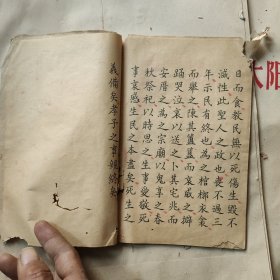 日而食教民無以死傷生毀不
滅性此聖人之政也喪不過三
年示民有終也為之棺槨衣衾
而舉之陳其簠簋而哀慼之擗
踊哭泣哀以送之卜其宅兆而
安厝之為之宗廟以鬼享之春
秋祭祀以時思之生事愛敬死
事哀慼生民之本盡矣死生之
義備矣孝子之事親終矣
太阳